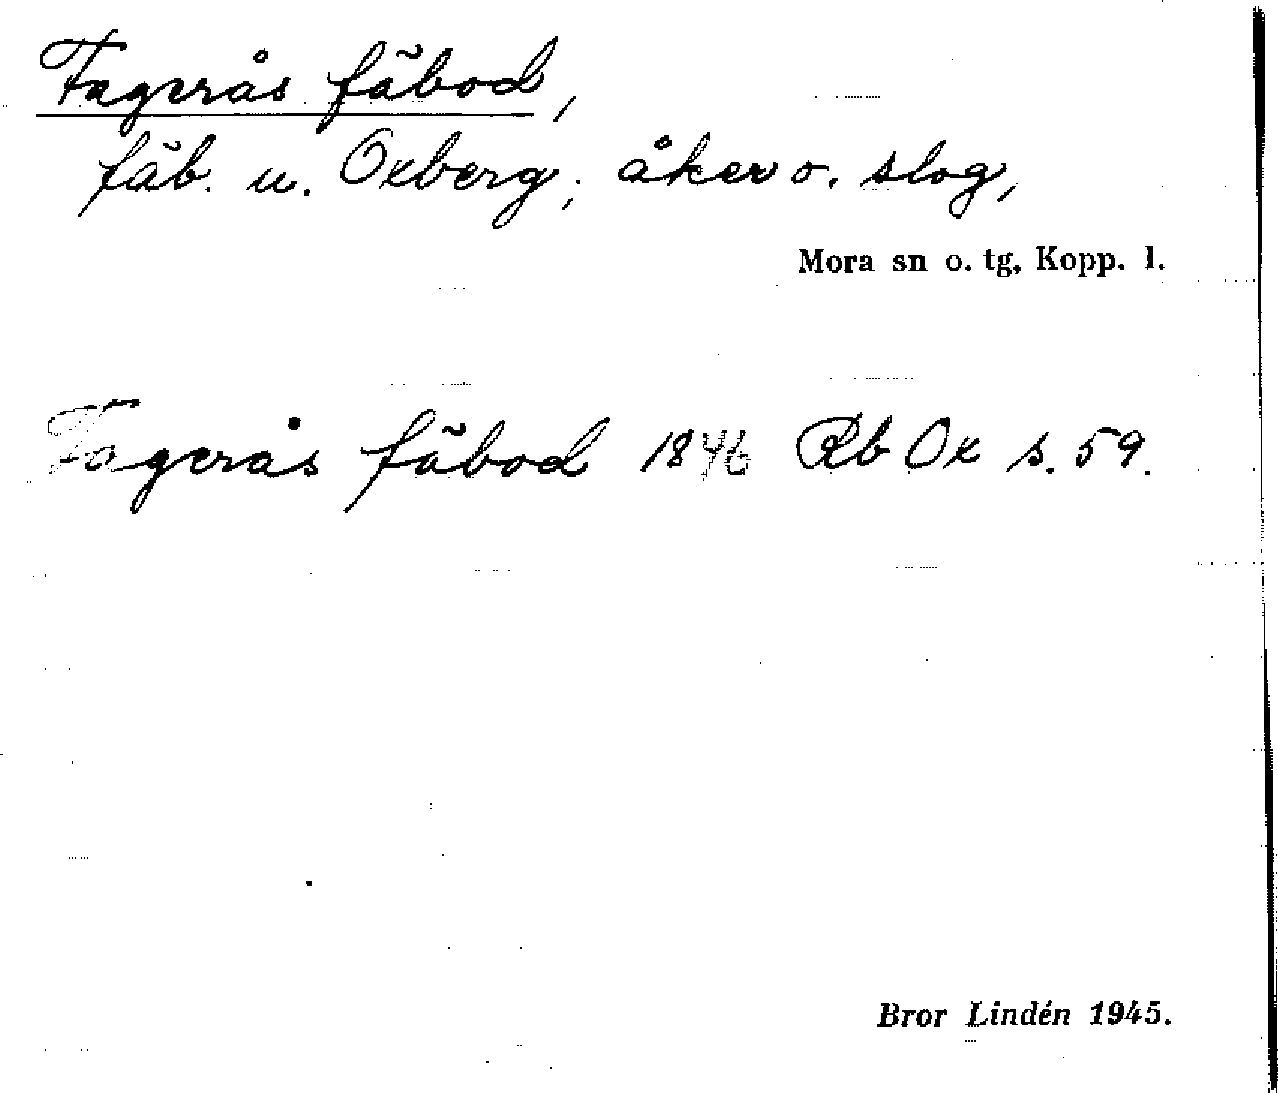 Fagerås fäbod,
fäb. u. Oxberg; åker o. slog,
Mora sn o. tg, Kopp. l.
Fagerås fäbod 1846 Rb Ox s. 59.
Bror Lindén 1945.